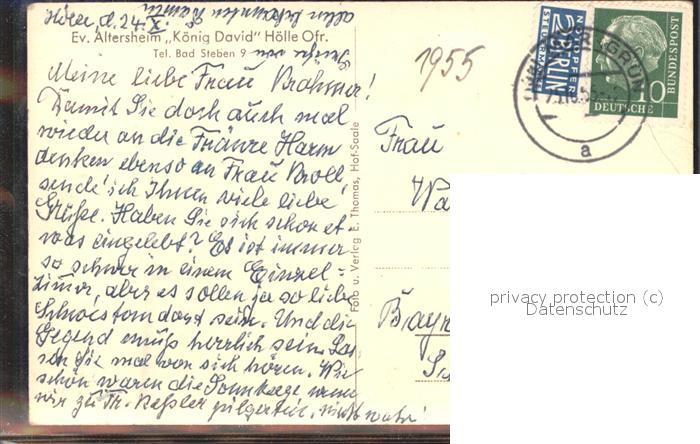 Hölle, d. 24. X.
Ev. Altersheim „König David" Hölle Ofr.
Tel. Bad Steben 9
1955
Meine liebe Frau Brahmer!
Damit Sie doch auch mal
wieder an die Fränze Harm
denken ebenso an Frau Kroll,
sende ich Ihnen viele liebe
Grüße. Haben Sie sich schon et-
was eingelebt? Es ist immer
so schwer in einem Einzel-
zimmer, aber es sollen ja so liebe
Schwestern dort sein. Und die
Gegend muß herrlich sein. Las-
sen Sie mal von sich hören. Wie
schön waren die Sonntage wenn
wir zu Fr. Keßler pilgerten, nicht wahr!
Foto u. Verlag E. Thomas, Hof-Saale
NOTOPFER
2 BERLIN
STEUERMARKE
DEUTSCHE
BUNDESPOST
10
a
Frau
Wa
Bayr
privacy protection (c)
Datenschutz